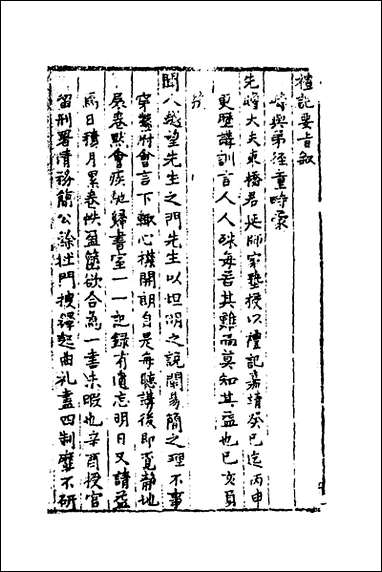 禮記要旨叙
與弟徑童時蒙
先大夫東橋君延師家塾授以禮記嘉靖癸巳迄丙申
更歷講訓言人人殊每苦其難而莫知其益也已亥負
笈
聞人越望先生之門先生以坦明之說闡易簡之理不事
穿鑿附會言下輒心機開朗自是每聽講後即覓靜地
展卷點會疾馳歸書室一一記錄有遺忘明日又請益
焉日積月累卷帙盈篋欲合為一書未暇也辛酉授官
留刑署情務簡公餘杜門搜繹起曲礼盡四制靡不研